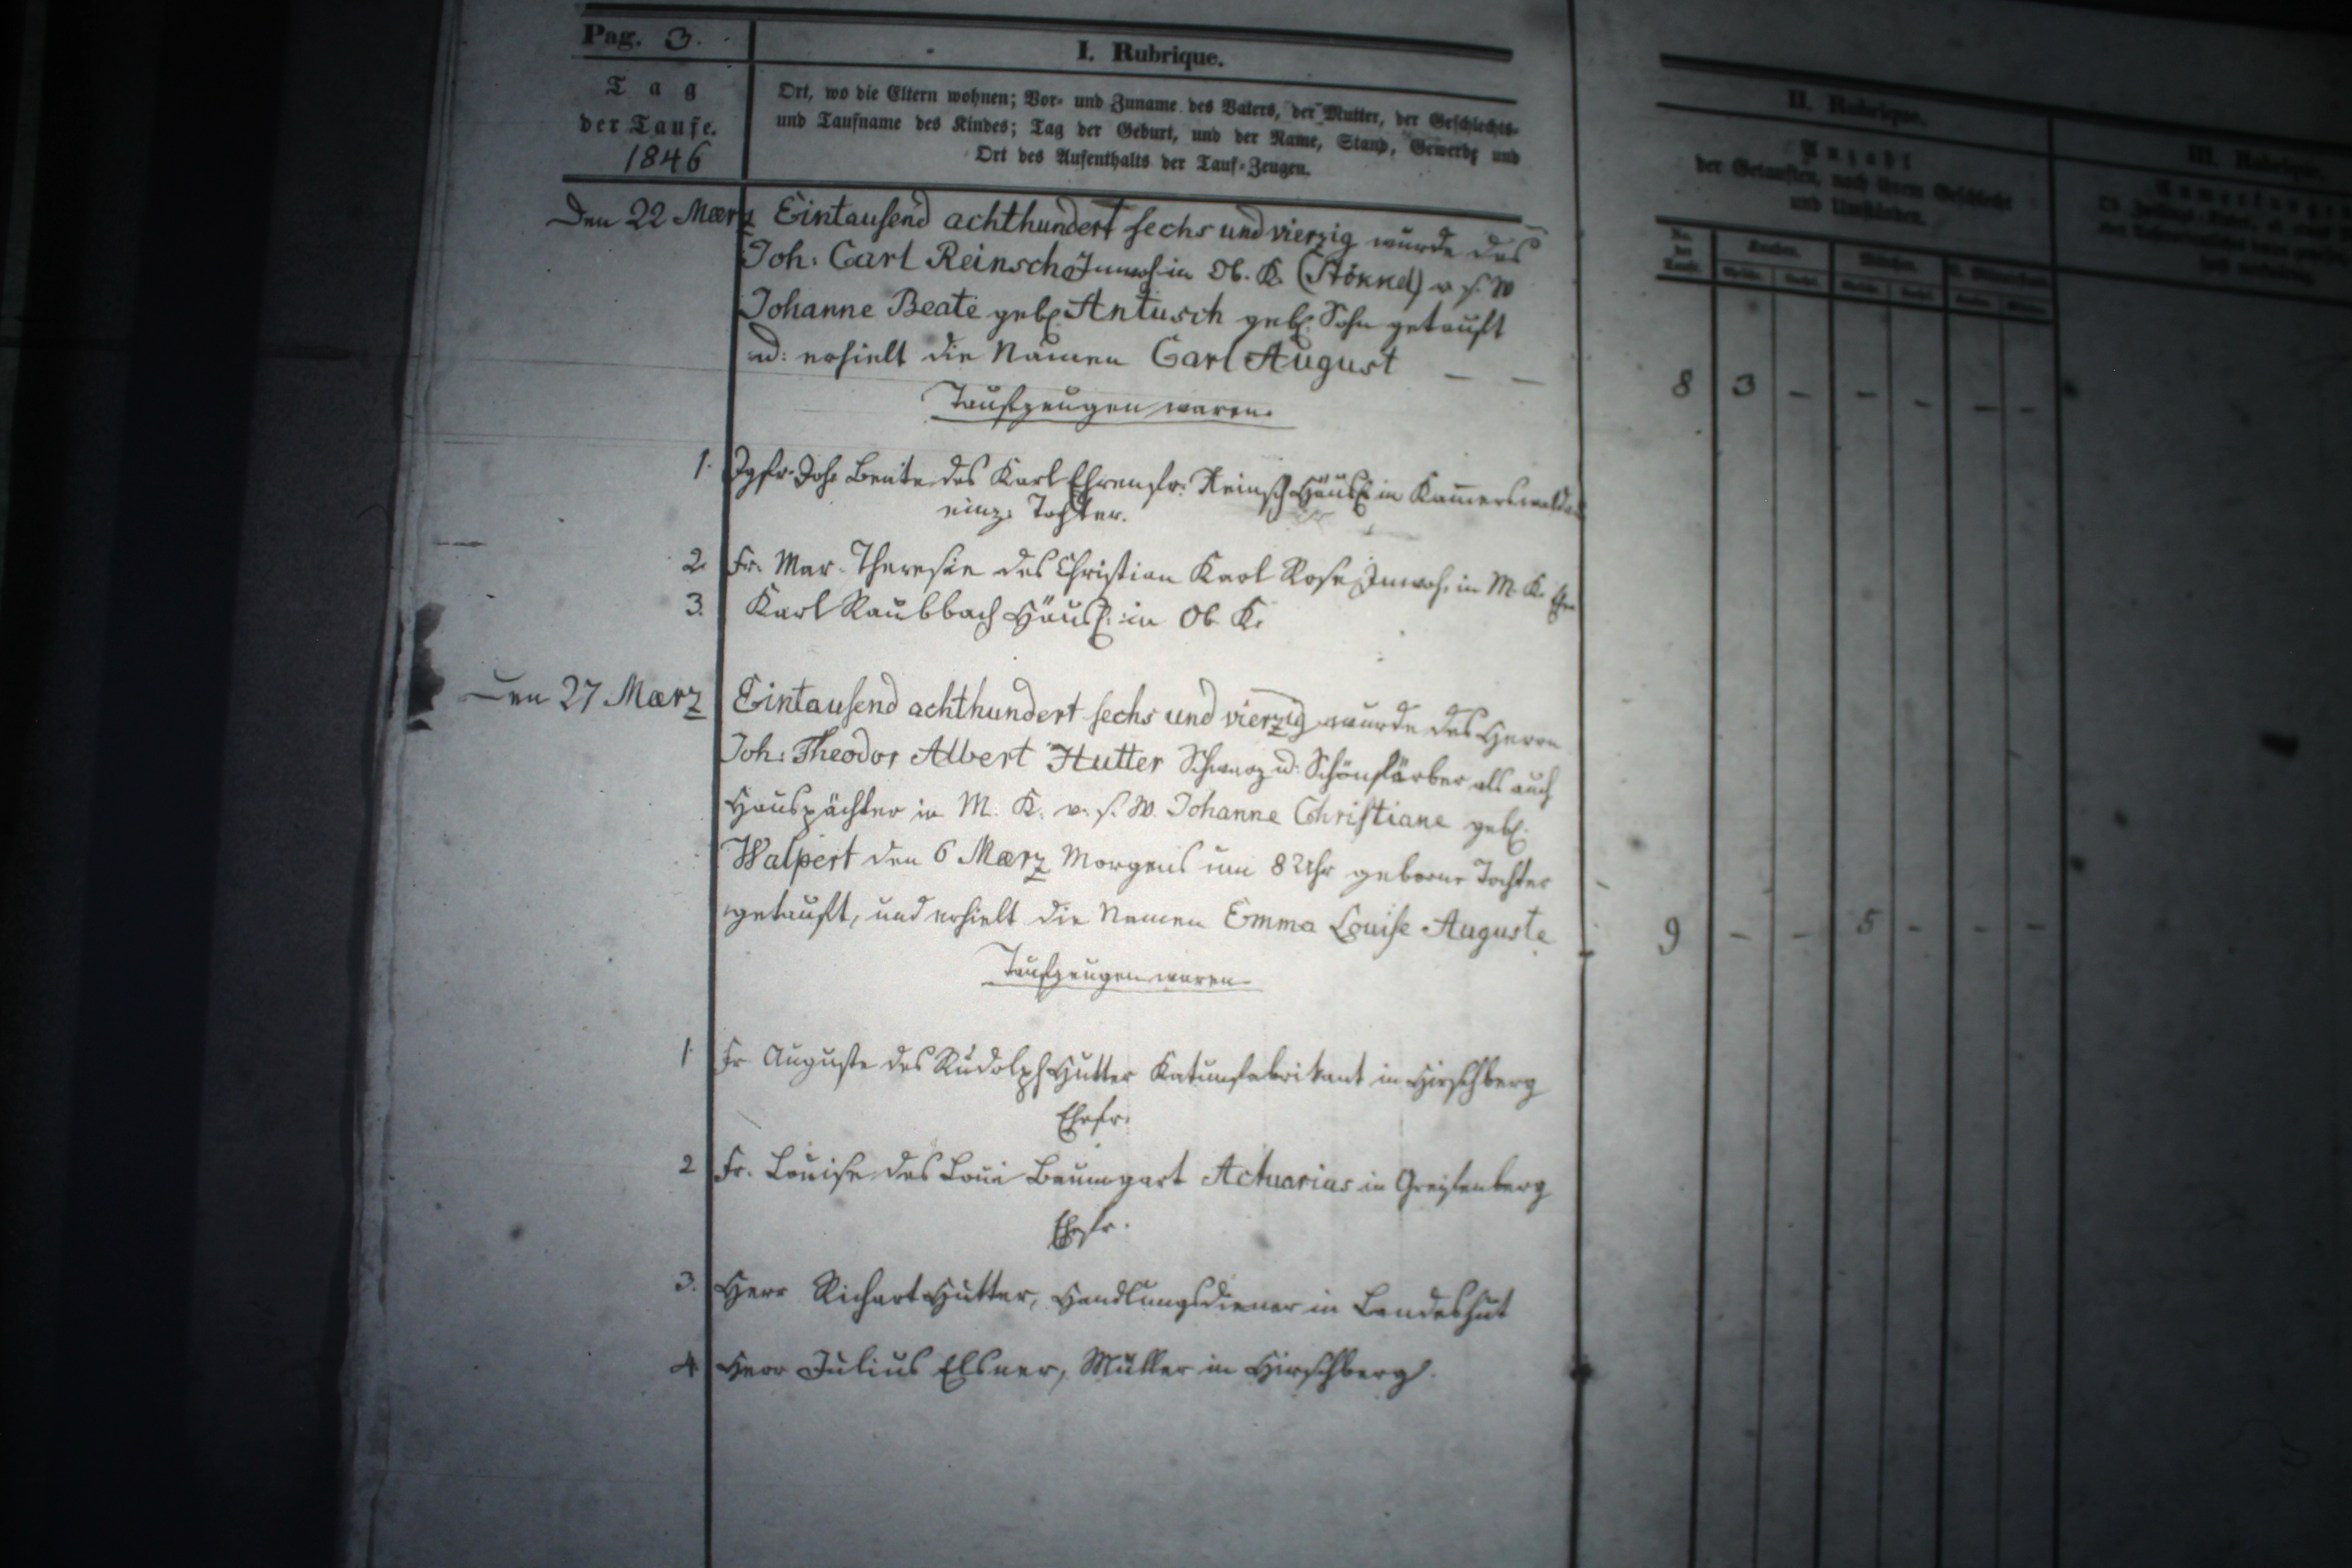 Pag. 3.
I. Rubrique.
Tag
der Taufe.
1846
Ort, wo die Eltern wohnen; Vor- und Zuname des Vaters, der Mutter, der Geschlechts-
und Taufname des Kindes; Tag der Geburt, und der Name, Stand, Gewerbe und
Ort des Aufenthalts der Tauf-Zeugen.
II. Rubrique.
Anzahl
der Getauften, nach ihrem Geschlecht
und Umständen.
III. Rubrique.
No. der Taufe.
Knaben.
Mädchen.
Den 22 Maerz Eintausend achthundert sechs und vierzig wurde des
Joh: Carl Reinsch Inwoh in Ob. K. (Stönkel) v. s. W
Johanne Beate geb. Antusch geb. Sohn getauft
u: erhielt die Namen Carl August — —
8 3 - - - - -
Taufzeugen waren.
1. Jgfr. Joh. Beate des Karl Ehrenfr. Reinsch Häusl. in Kam̅erswaldau
einz. Tochter.
2. Fr. Mar. Theresie des Christian Karl Rose Inwoh. in M. K.
3. Karl Raubbach Häusl. in Ob. K.
Den 27 Maerz Eintausend achthundert sechs und vierzig wurde des Herrn
Joh: Theodor Albert Hutter Schwarz u: Schönfärber als auch
Hauspächter in M. K. v. s. W. Johanne Christiane geb.
Walpert den 6 Maerz Morgens um 8 Uhr geborne Tochter
getauft, und erhielt die Namen Emma Louise Auguste
9 - - 5 - - -
Taufzeugen waren
1. Fr. Auguste des Rudolph Hutter Katunfabrikant in Hirschberg
Ehefr.
2 Fr. Louise des Loui Baumgart Actuarius in Greifenberg
Ehefr.
3. Herr Richart Hutter, Handlungsdiener in Landeshut
4 Herr Julius Elsner, Müller in Hirschberg.